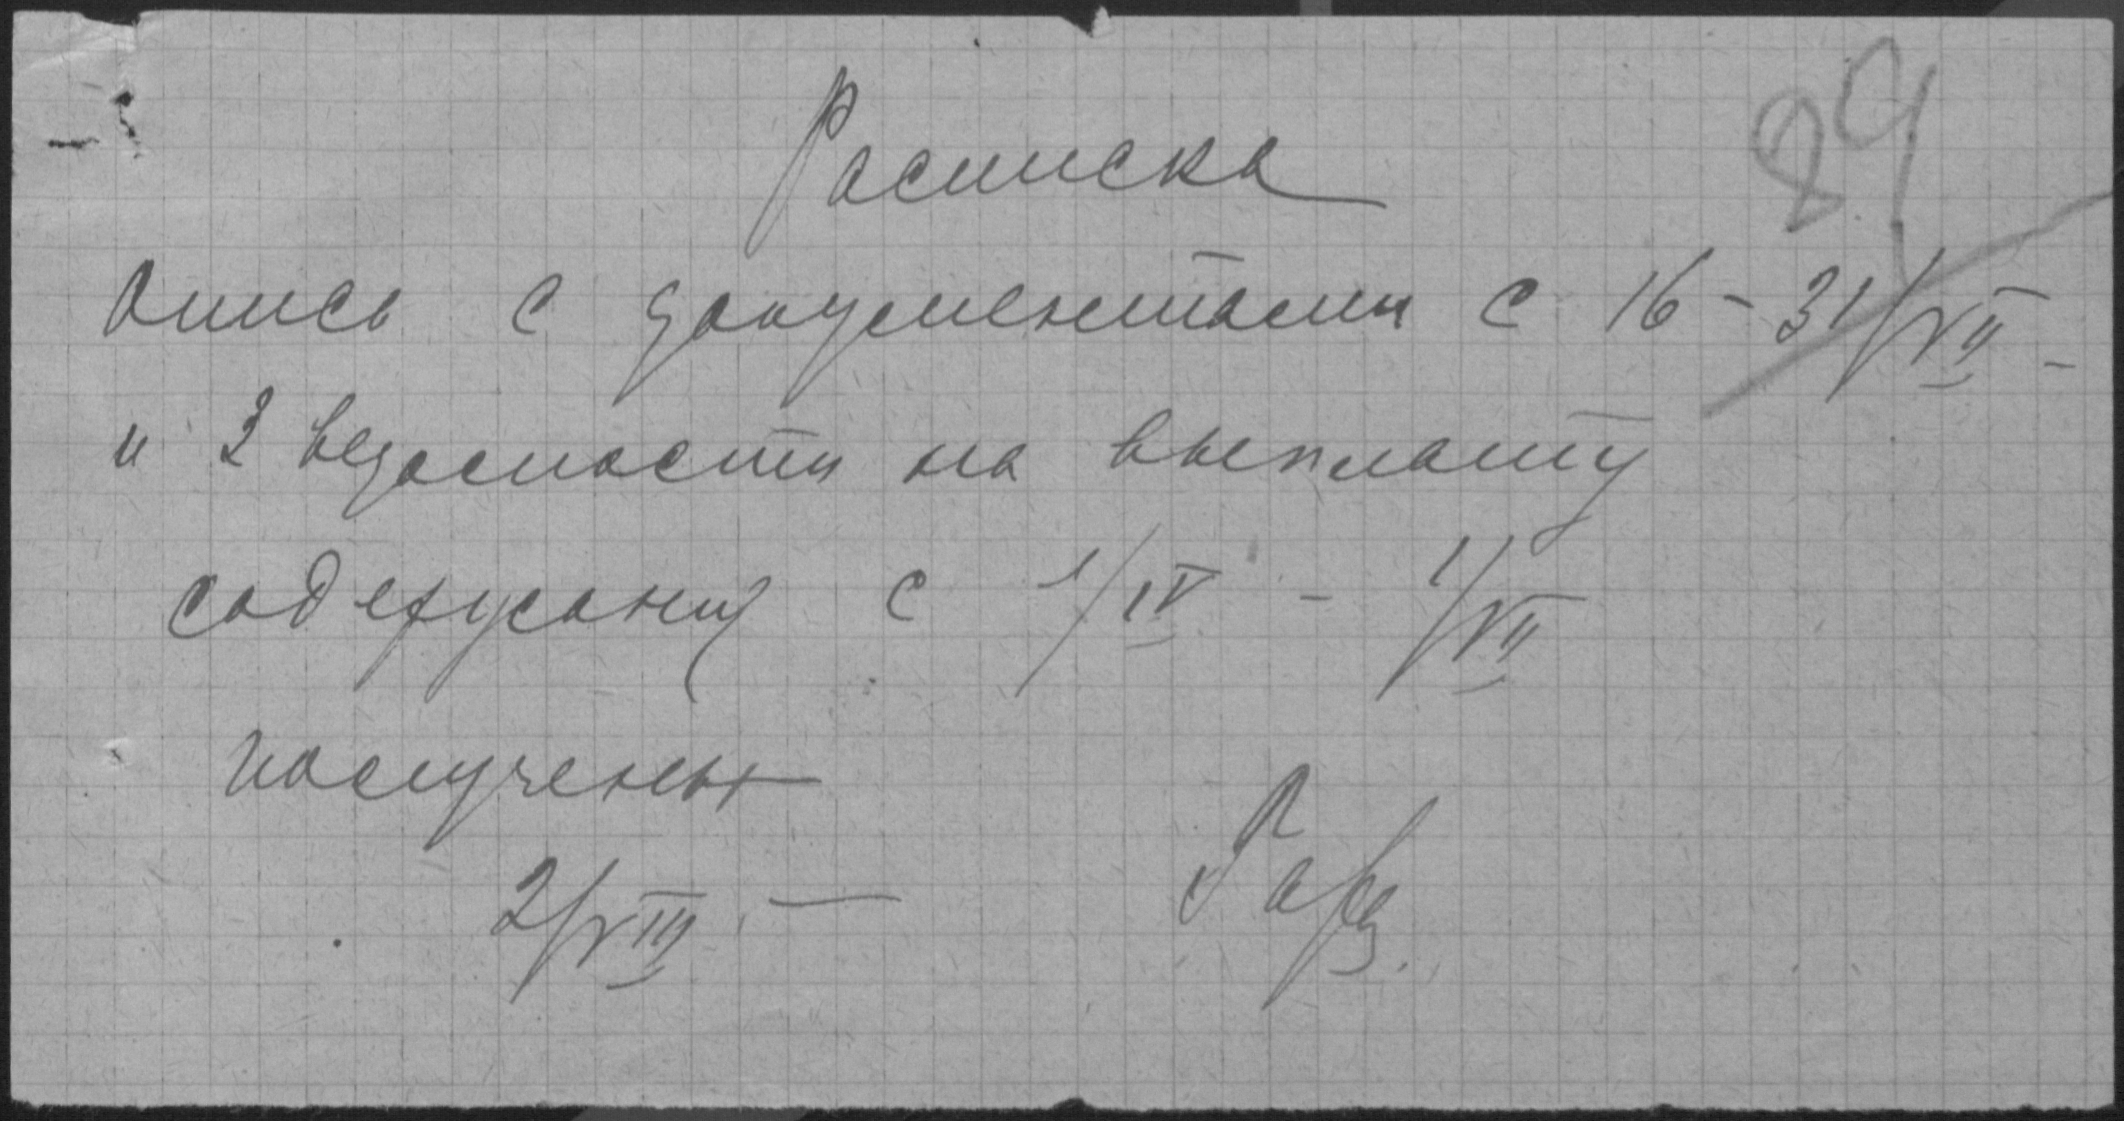 29
Расписка
Опись с документами с 16 - 31/VII -
и 2 ведомости на выплату
содержания с 1/IV - 1/VII
получены
2/VIII —